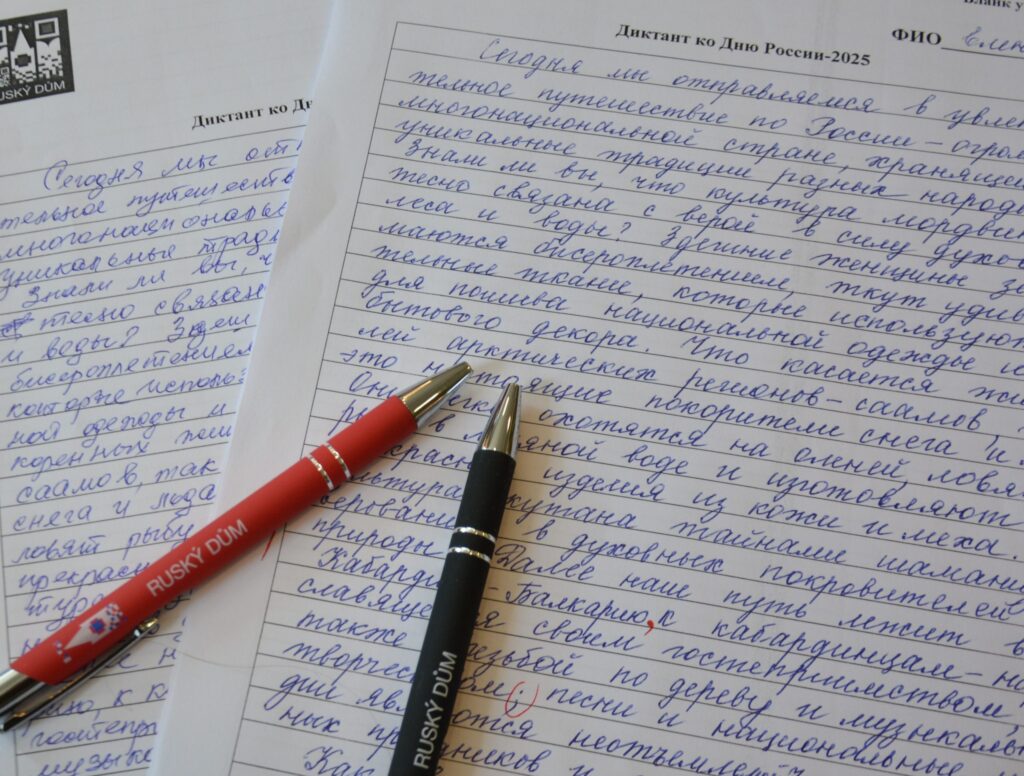 RUSKÝ DŮM
Диктант ко Дн
Сегодня мы отп
тельное путешеств
многонациональ
уникальные трад
Знали ли вы, ч
тесно связан
и воды? Здеш
бисероплетением
которые использ
ной одежды и
коренных
саамов, так
снега и льда
ловят рыбу
прекрасн
к к
гостепр
музыка
Бланк у
ФИО Елен
Диктант ко Дню России-2025
Сегодня мы отправляемся в увлека
тельное путешествие по России – огром
многонациональной стране, хранящей
уникальные традиции разных народо
Знали ли вы, что культура мордви
тесно связана с верой в силу духов
леса и воды? Здешние женщины за
маются бисероплетением, ткут удив
тельные ткани, которые используют
для пошива национальной одежды и
бытового декора. Что касается жи
лей арктических регионов – саамов
это н стоящие покорители снега и л
Они легко охотятся на оленей, ловят
ры в л дяной воде и изготовляют
красн изделия из кожи и меха.
льтура кутана тайнами шаман
серовани в духовных покровителей
природы Далее наш путь лежит в
Кабарди - Балкарию, к кабардинцам-на
славяще я своим гостеприимством,
также езьбой по дереву и музыкаль
творчес ом; песни и национальные
дии яв ются неотъемлемой
ных пр дников и
Как
RUSKÝ DŮM
RUSKÝ DŮM